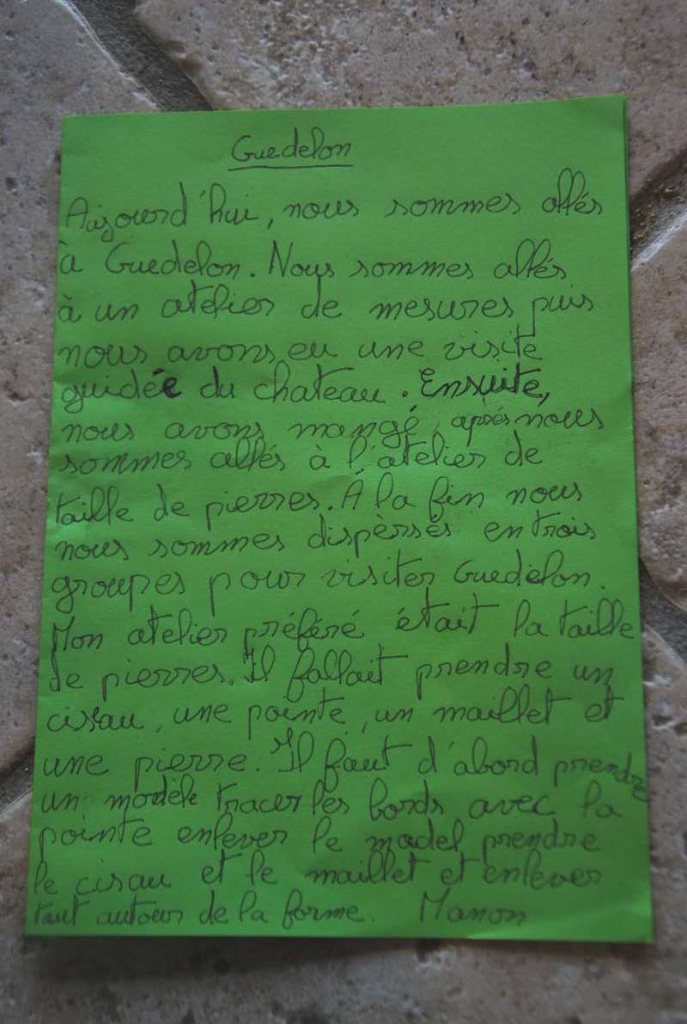 Guedelon
Aujourd'hui, nous sommes allés
à Guedelon. Nous sommes allés
à un atelier de mesures puis
nous avons eu une visite
guidée du chateau. Ensuite,
nous avons mangé, après nous
sommes allés à l'atelier de
taille de pierres. À la fin nous
nous sommes dispersés en trois
groupes pour visiter Guedelon.
Mon atelier préféré était la taille
de pierres. Il fallait prendre un
cisau, une pointe, un maillet et
une pierre. Il faut d'abord prendre
un modèle tracer les bords avec la
pointe enlever le model prendre
le cisau et le maillet et enlever
tout autour de la forme. Manon